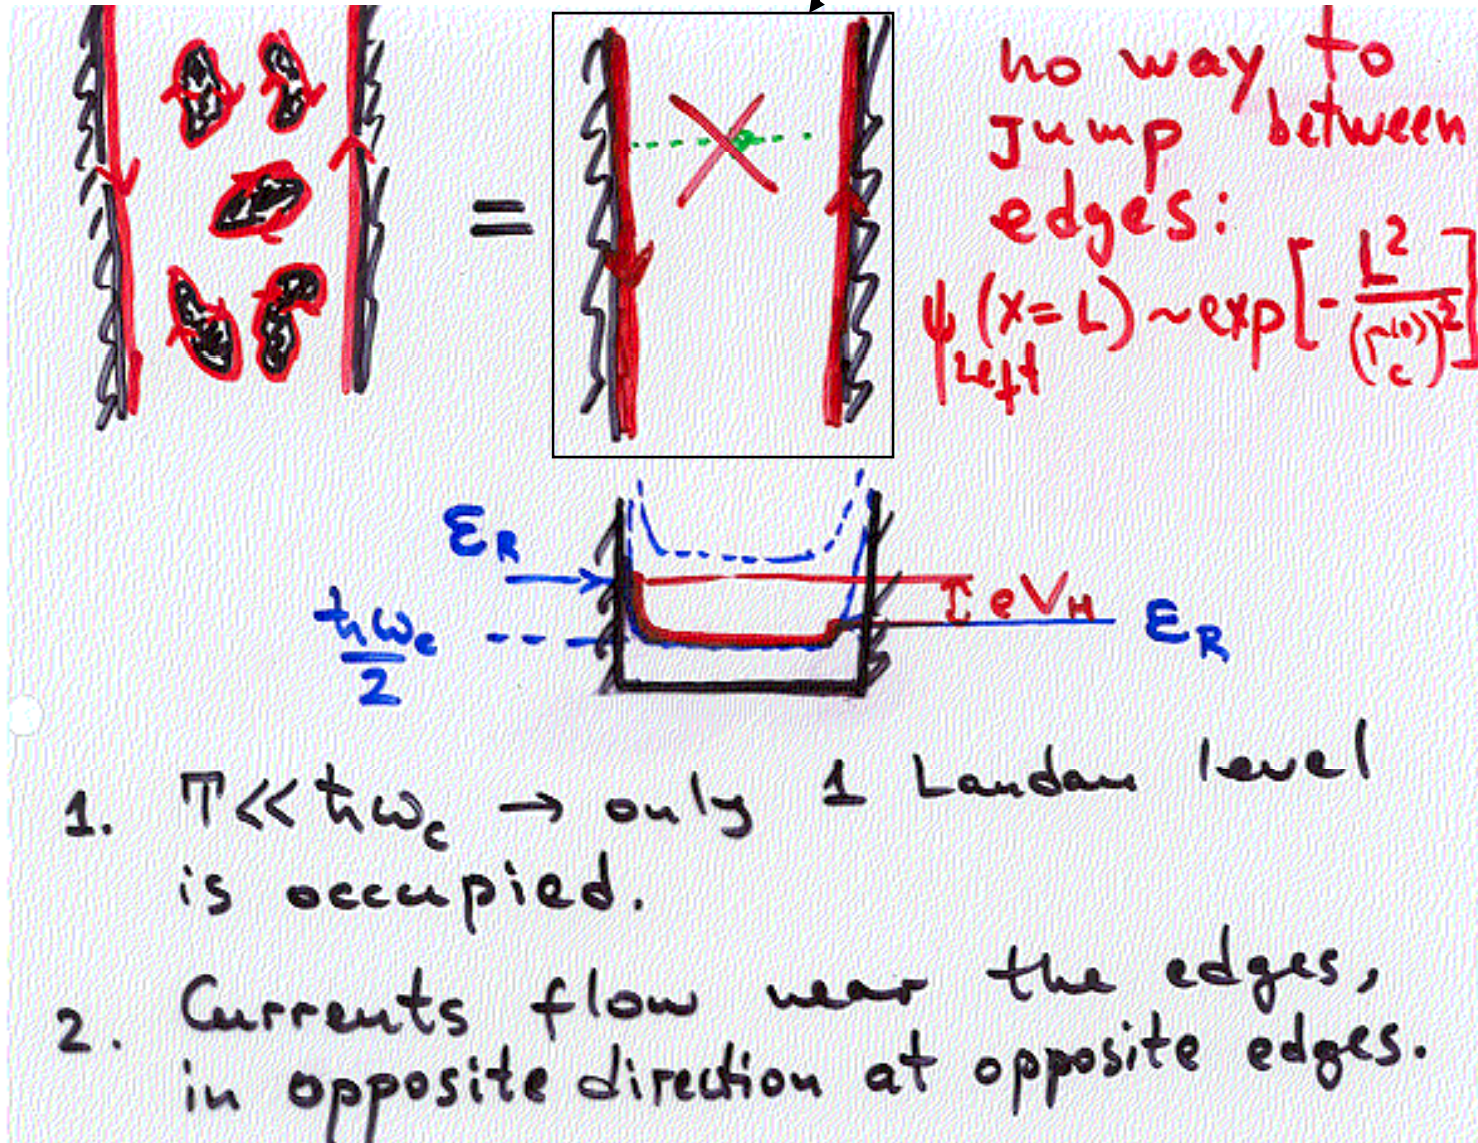 no way to
Jump between
edges:
=
ψ_Left (x=L) ~ exp[-L²/(r_c^(0))²]
ε_R
ħω_c/2
eV_H
ε_R
1. T << ħω_c → only 1 Landau level
is occupied.
2. Currents flow near the edges,
in opposite direction at opposite edges.